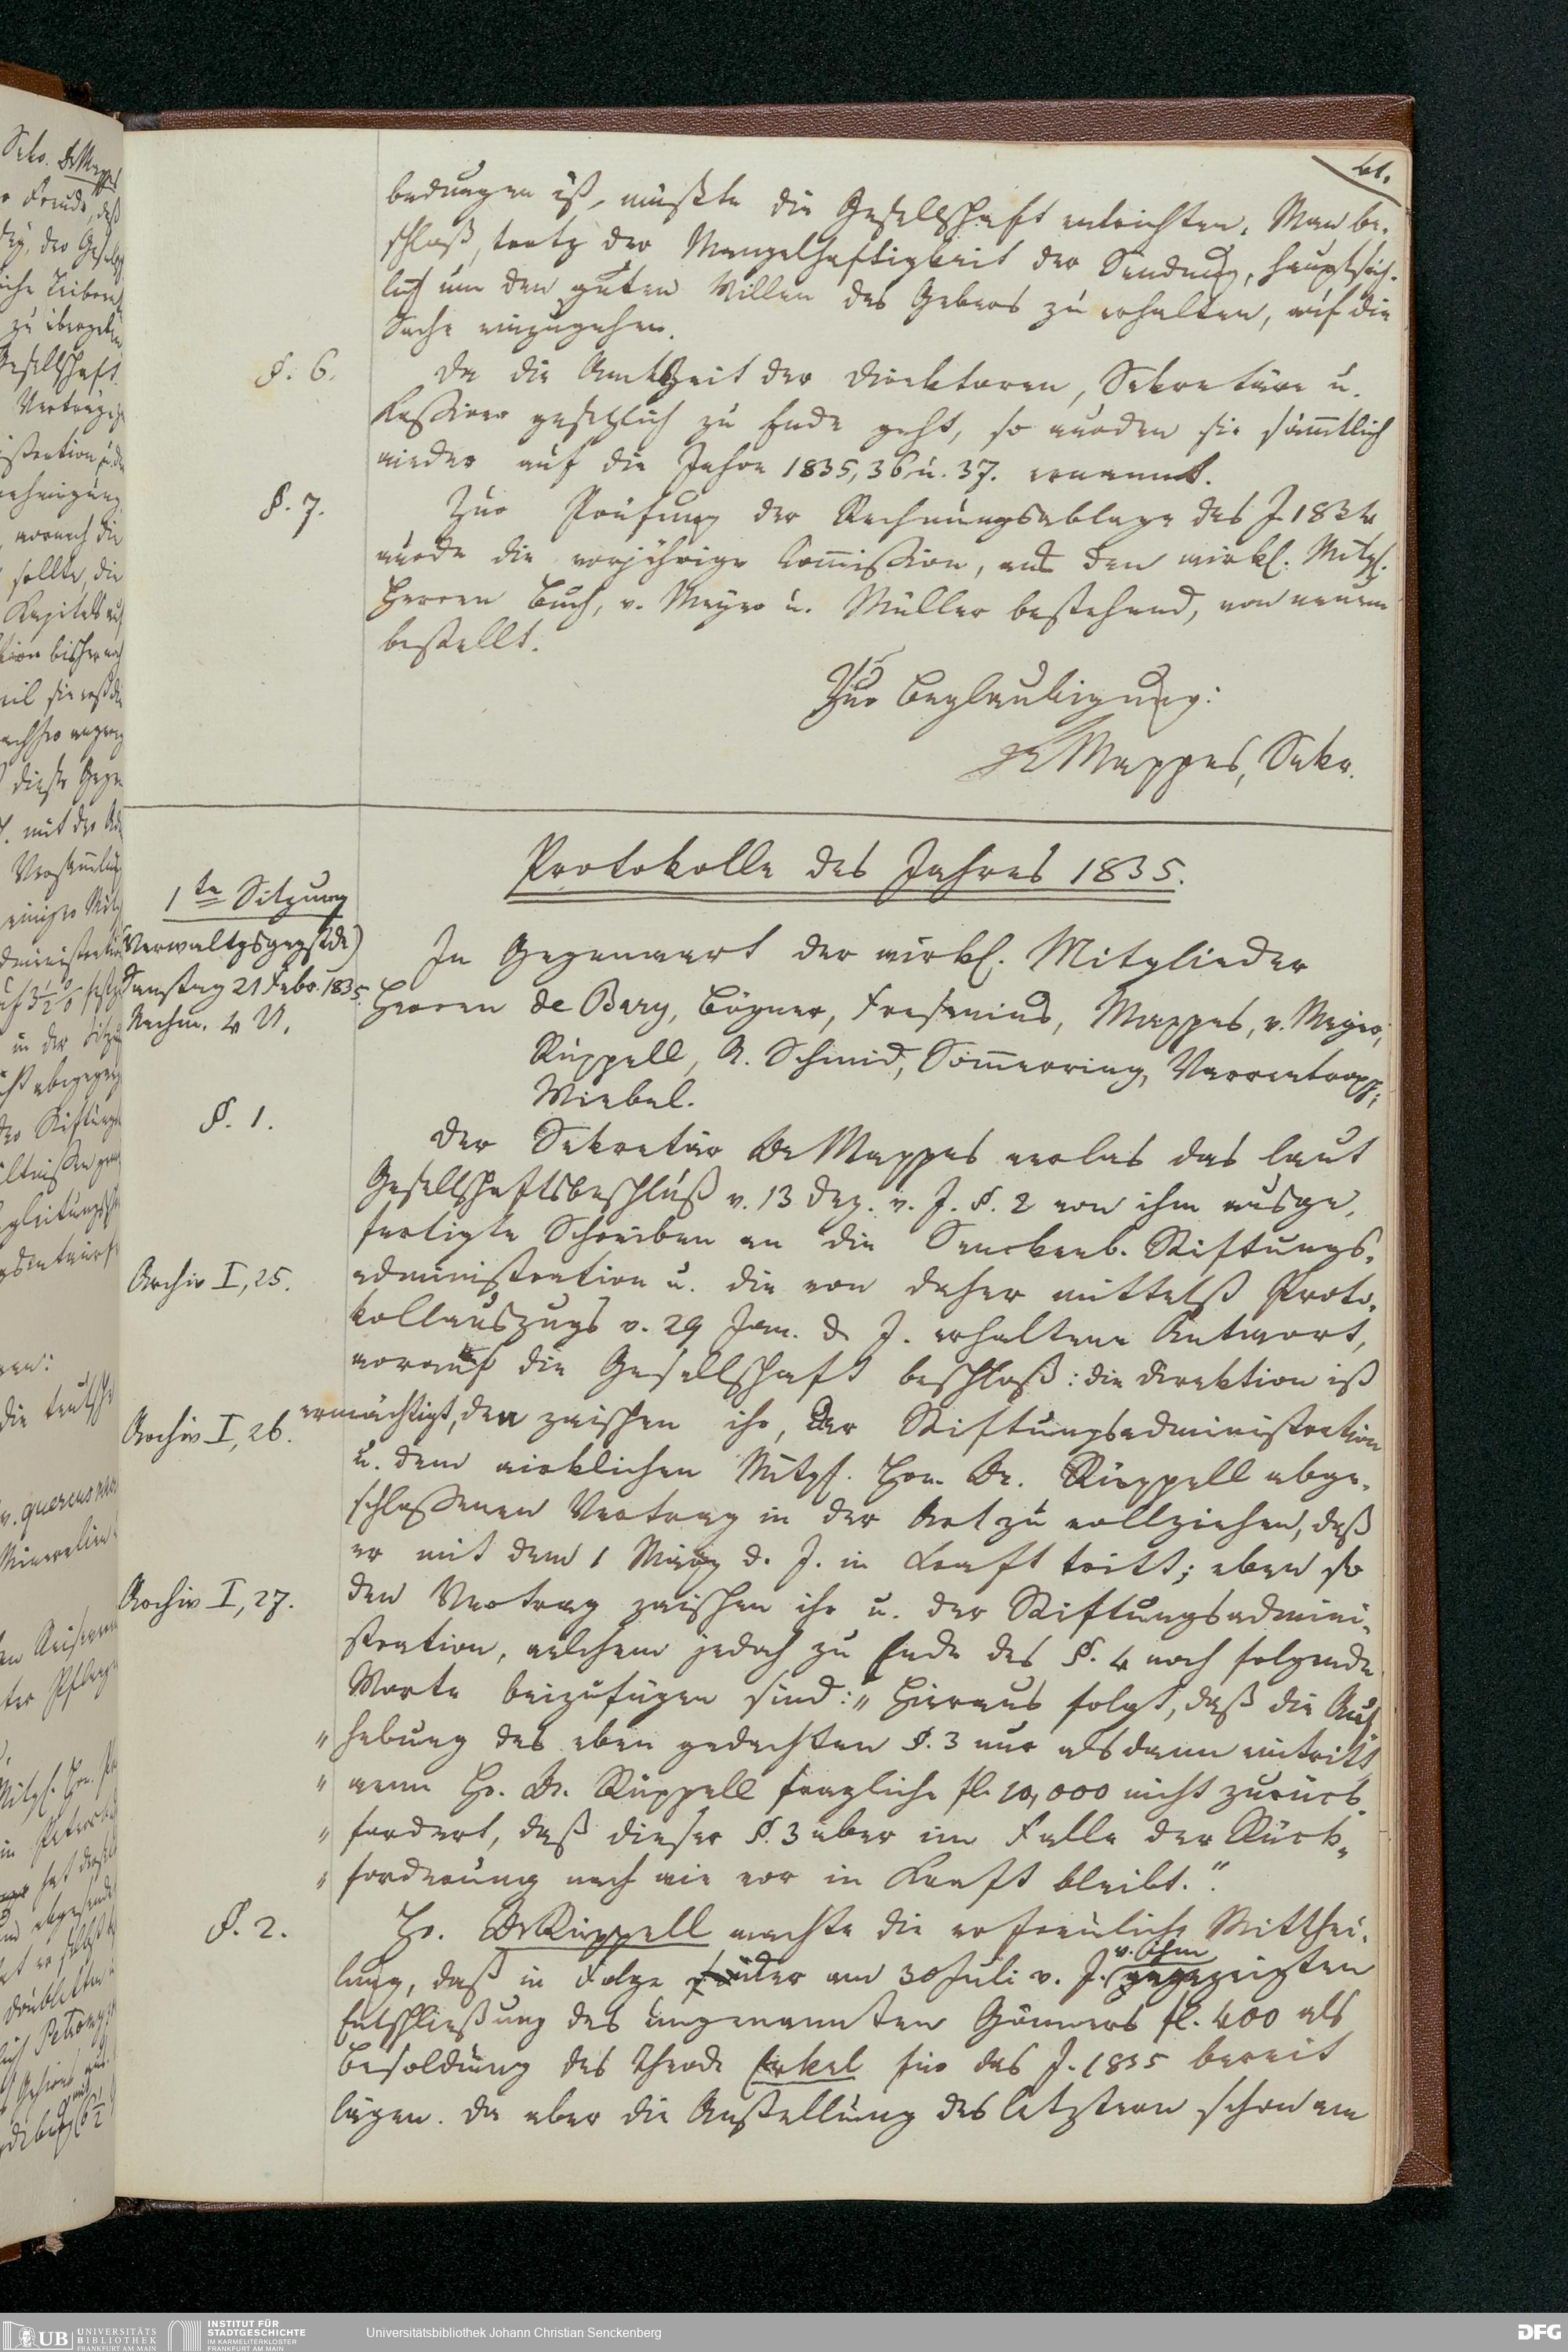 41.
bedungen ist, müßte die Gesellschaft entrichten. Man be-
schloß, trotz der Mangelhaftigkeit der Sendung, hauptsäch-
lich um den guten Willen des Gebers zu erhalten, auf die
Sache einzugehen.
§. 6.
Da die Amtszeit der Direktoren, Sekretäre u.
Kassirer gesetzlich zu Ende geht, so wurden sie sämmtlich
wieder auf die Jahre 1835, 36 u. 37. ernannt.
§. 7.
Zur Prüfung der Rechnungsablage des J. 1834
wurde die vorjährige Commission, aus den wirkl. Mitgl.
Herren Buch, v. Meyer u. Müller bestehend, von neuem
bestellt.
Zur Beglaubigung:
Dr Mappes, Sekr.
Protokolle des Jahres 1835.
1te Sitzung
(Verwaltgsgegstde)
Samstag 21 Febr. 1835.
Nachm. 4 U.
In Gegenwart der wirkl. Mitglieder
Herren de Bary, Bögner, Fresenius, Mappes, v. Meyer,
Rüppell, A. Schmid, Sömmerring, Varrentrapp,
Wiebel.
§. 1.
Der Sekretär Dr Mappes verlas das laut
Gesellschaftsbeschluß v. 13 Dez. v. J. §. 2 von ihm ausge-
fertigte Schreiben an die Senckenb. Stiftungs-
Archiv I, 25.
administration u. die von daher mittelst Proto-
kollauszugs v. 29 Jan. d. J. erhaltene Antwort,
worauf die Gesellschaft beschloß: die Direktion ist
Archiv I, 26.
ermächtigt, den zwischen ihr, der Stiftungsadministration
u. dem wirklichen Mitgl. Hrn. Dr. Rüppell abge-
schlossenen Vertrag in der Art zu vollziehen, daß
er mit dem 1 März d. J. in Kraft tritt; eben so
Archiv I, 27.
den Vertrag zwischen ihr u. der Stiftungsadmini-
stration, welchem jedoch zu Ende des §. 4 noch folgende
Worte beizufügen sind: „Hieraus folgt, daß die Auf-
„hebung des eben gedachten §. 3 nur alsdann eintritt,
„wenn Hr. Dr. Rüppell fragliche fl. 10,000 nicht zurück-
„fordert, daß dieser §. 3 aber im Falle der Rück-
„forderung nach wie vor in Kraft bleibt.“
§. 2.
Hr. Dr Rüppell machte die erfreuliche Mitthei-
lung, daß in Folge der am 30 Juli v. J. v. ihm angezeigten
Entschließung des ungenannten Gönners fl. 400 als
Besoldung des Theod. Erkel für das J. 1835 bereit
lägen. Da aber die Anstellung des letztern schon am
UB UNIVERSITÄTS
BIBLIOTHEK
FRANKFURT AM MAIN
INSTITUT FÜR
STADTGESCHICHTE
IM KARMELITERKLOSTER
FRANKFURT AM MAIN
Universitätsbibliothek Johann Christian Senckenberg
DFG